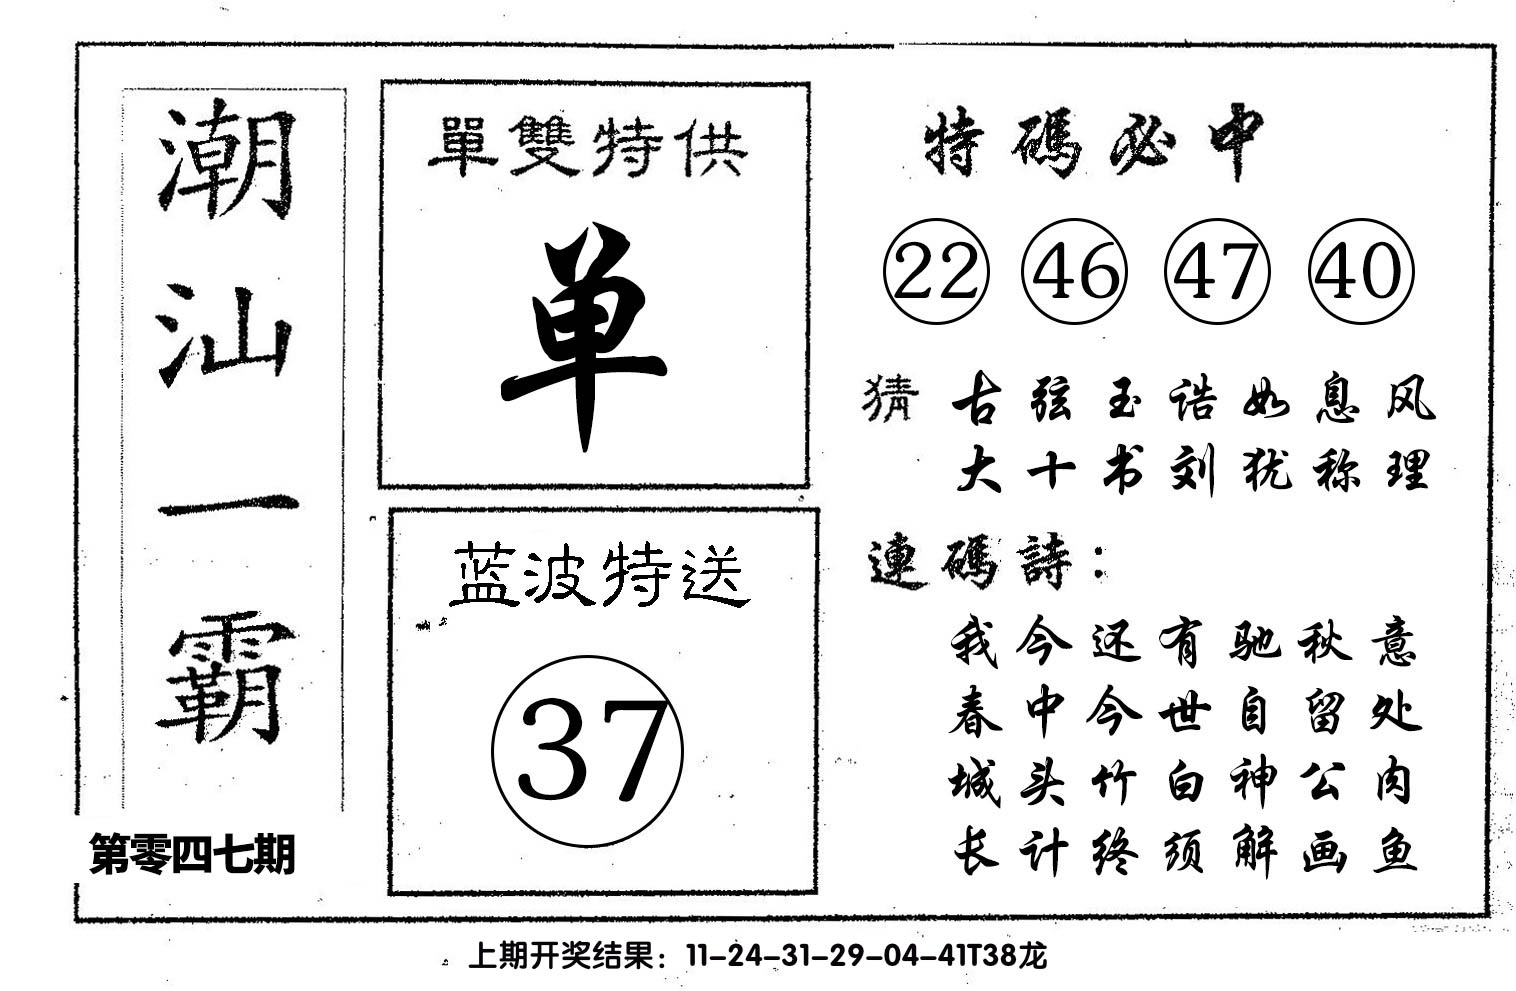 潮汕一霸
第零四七期
單雙特供
单
蓝波特送
37
特碼必中
22 46 47 40
猜 古弦玉诰如息风
大十书刘犹称理
連碼詩：
我今还有驰秋意
春中今世自留处
城头竹白神公肉
长计终须解画鱼
上期开奖结果：11-24-31-29-04-41T38龙